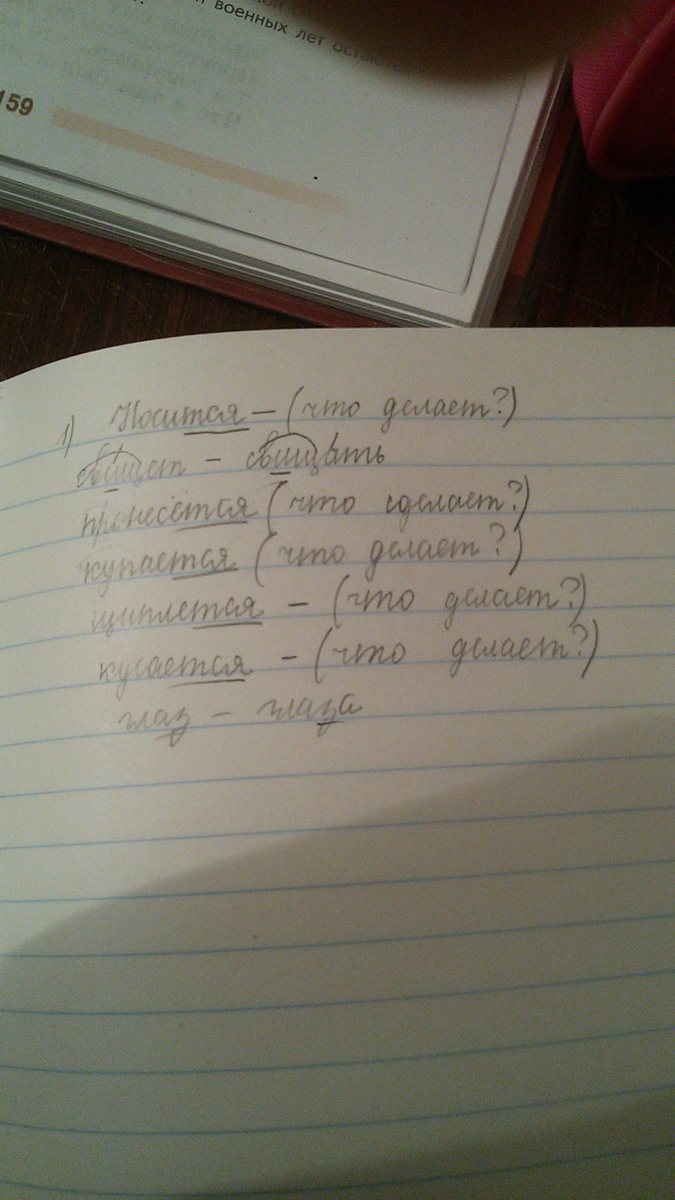 военных лет
159
1) Носится – (что делает?)
свищет – свищать
пронесётся (что сделает?)
купается (что делает?)
щиплется – (что делает?)
кусается – (что делает?)
глаз – глаза